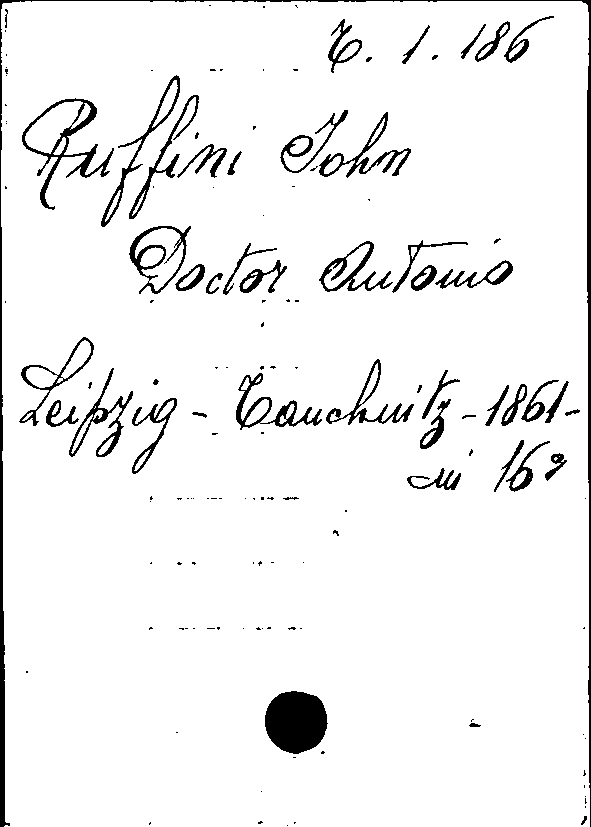 T. 1. 186
Ruffini John
Doctor Antonio
Leipzig - Tauchnitz - 1861 -
in 16º